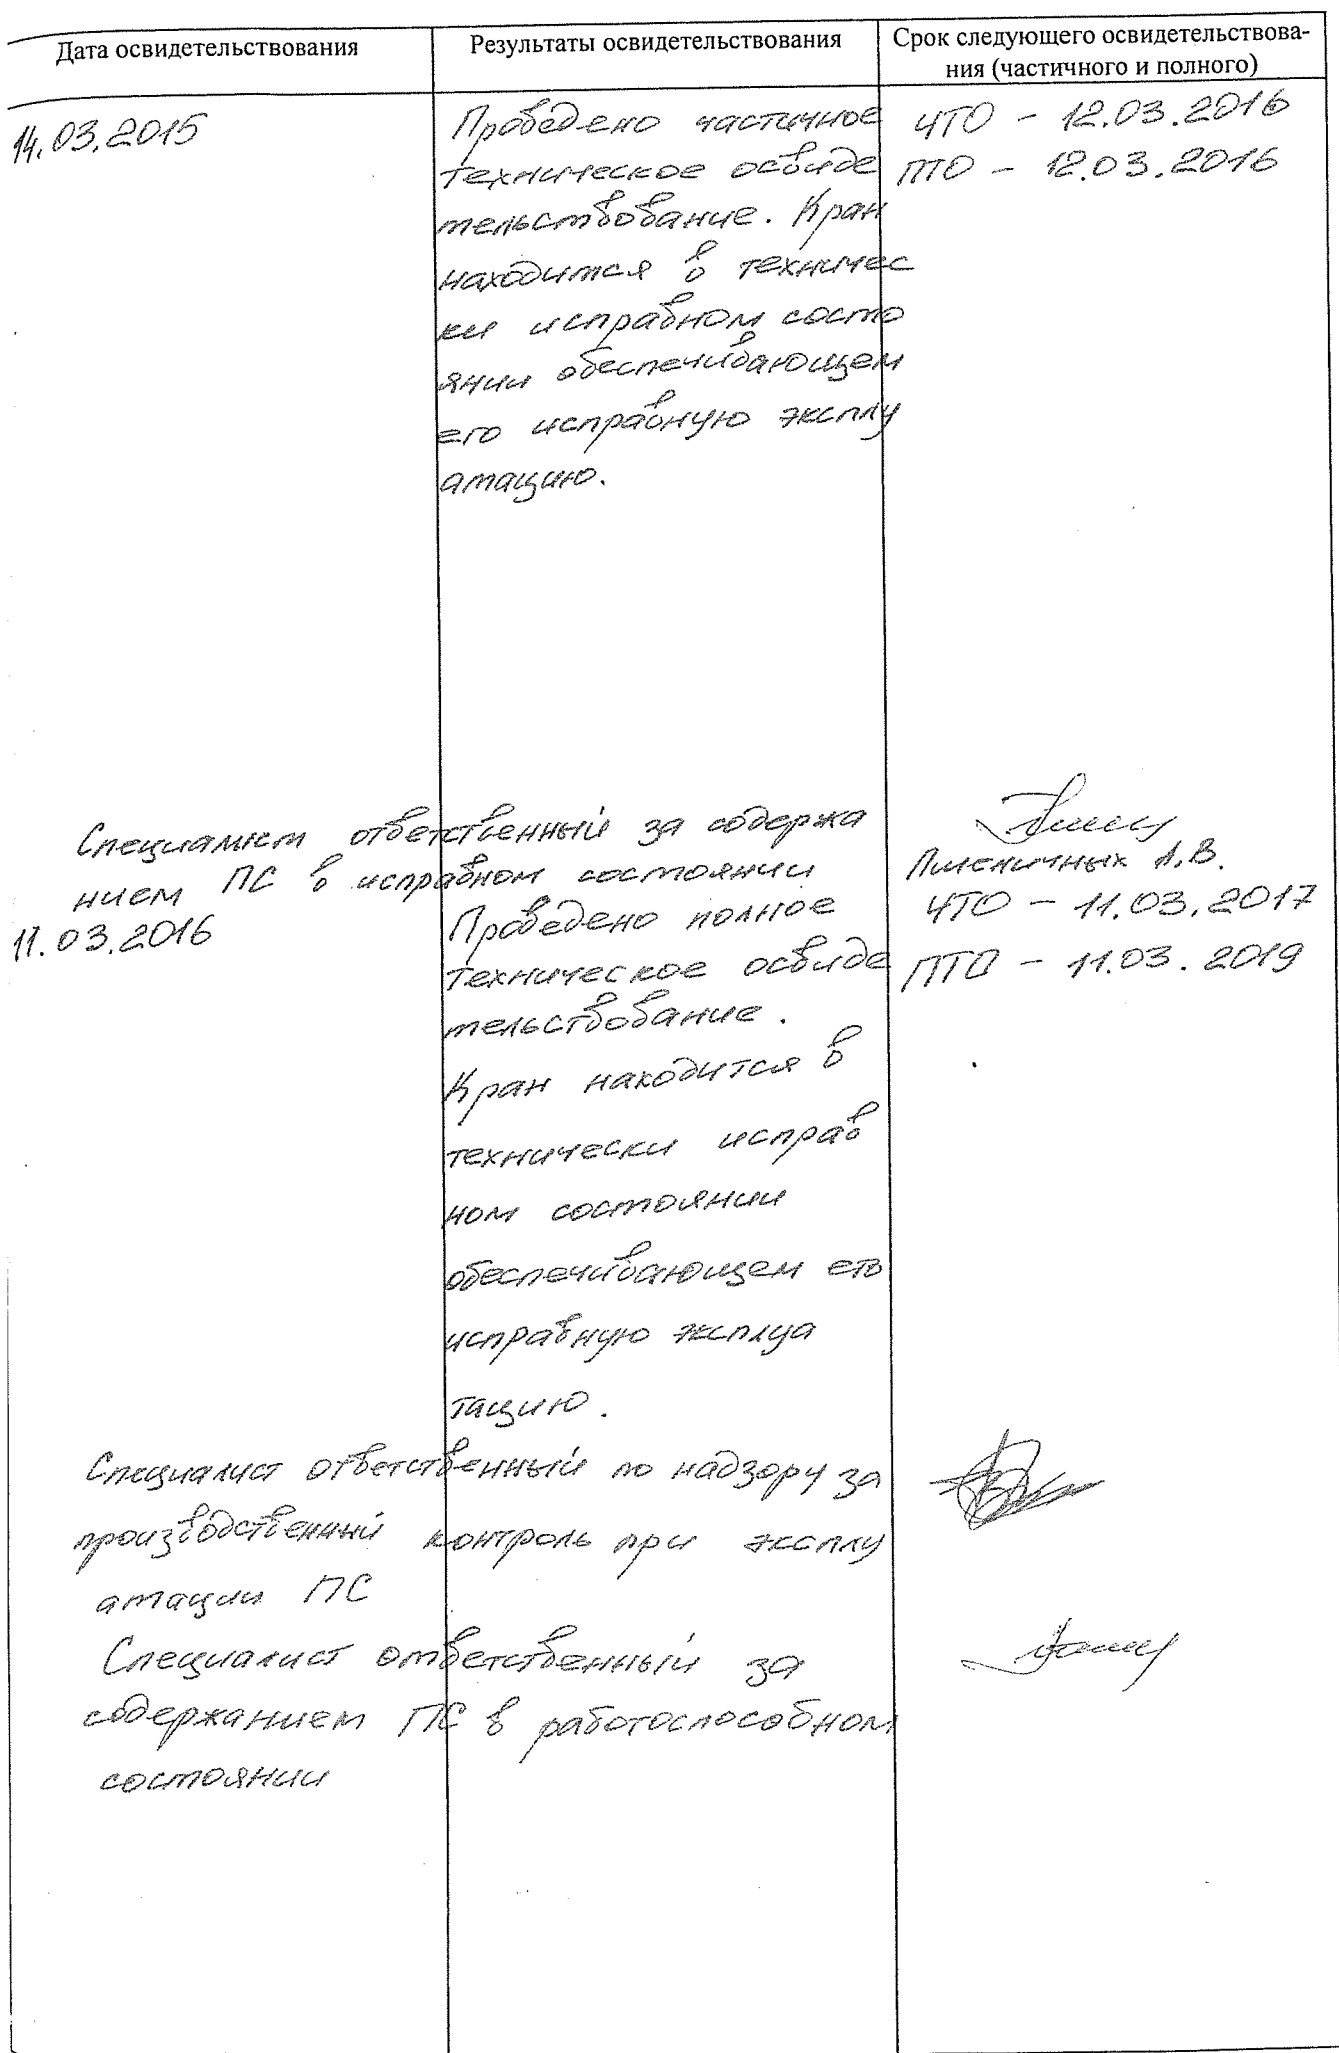 Дата освидетельствования
Результаты освидетельствования
Срок следующего освидетельствова-
ния (частичного и полного)
14.03.2015
Проведено частичное
техническое освиде
тельствование. Кран
находится в техничес
ки исправном состо
янии обеспечивающем
его исправную эксплу
атацию.
ЧТО - 12.03.2016
ПТО - 12.03.2016
Специалист ответственный за содержа
нием ПС в исправном состоянии
Пшеничных А.В.
11.03.2016
Проведено полное
техническое освиде
тельствование.
Кран находится в
технически исправ
ном состоянии
обеспечивающем его
исправную эксплуа
тацию.
ЧТО - 11.03.2017
ПТО - 11.03.2019
Специалист ответственный по надзору за
производственный контроль при эксплу
атации ПС
Специалист ответственный за
содержанием ПС в работоспособном
состоянии